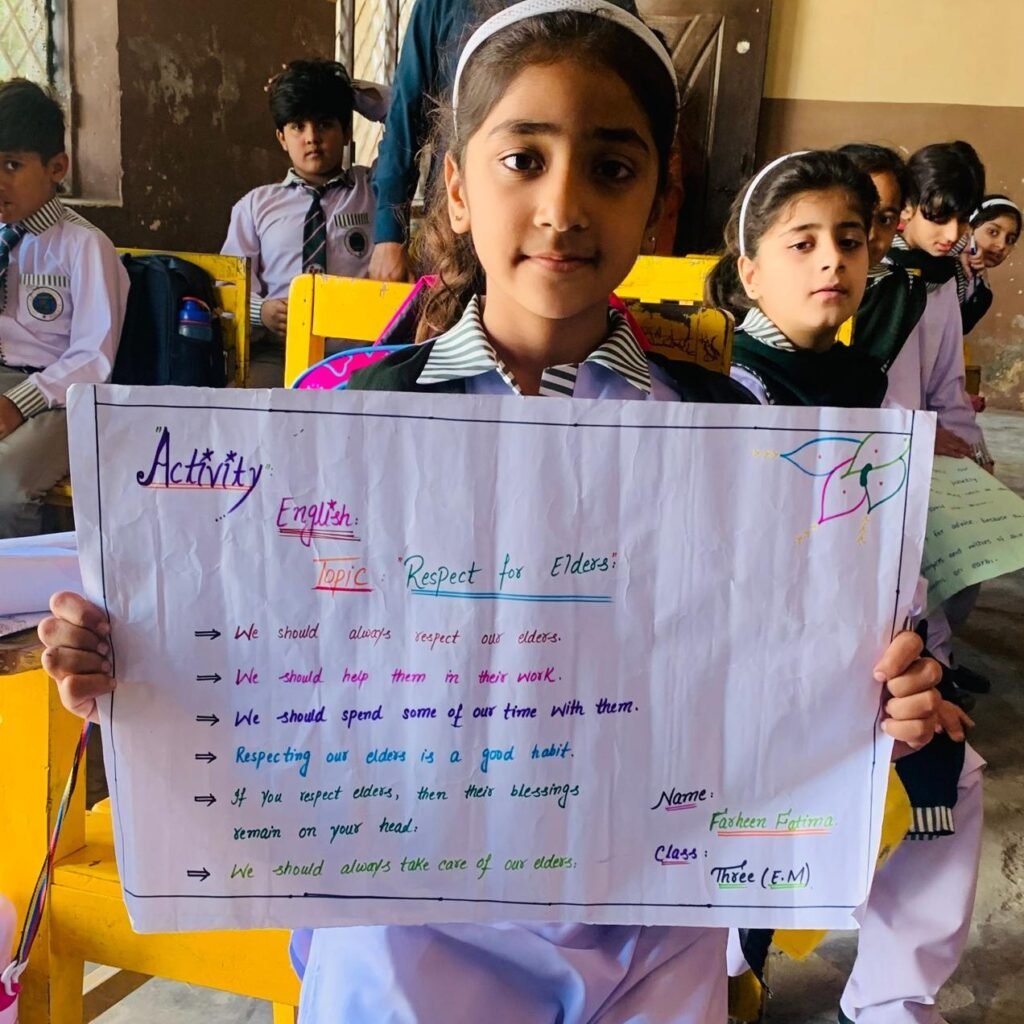 "Activity":
English:
Topic: "Respect for Elders:"
⇒ We should always respect our elders.
⇒ We should help them in their work.
⇒ We should spend some of our time with them.
⇒ Respecting our elders is a good habit.
⇒ If you respect elders, then their blessings
remain on your head.
⇒ We should always take care of our elders.
Name:
Farheen Fatima.
Class:
Three (E.M)
for advice. because